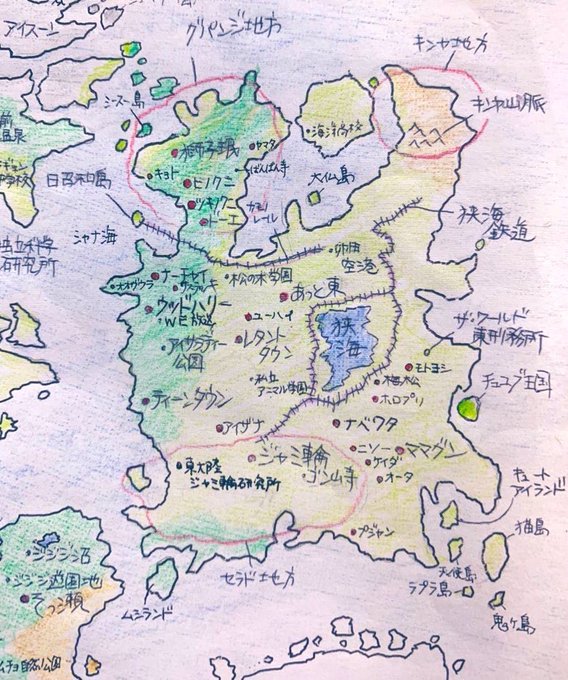 グリパンジ地方
キンヤ地方
アイスーン
シースー島
キンヤ山脈
獅子眠
ヤマタ
海洋高校
温泉
キョト
ばんばん寺
ヒノクニ
大仏島
ツキノクニ
ドーエ
モノ
レール
シャナ海
狭海
鉄道
卯田
空港
研究所
松の木学園
オオザクラ
あっと東
ウッドハリー
WE放送
ユーハイ
狭
海
ザ・ワールド
東刑務所
公園
レタント
タウン
モトヨシ
チューブ王国
私立
アニマル学園
梧松
ホロプリ
ティーンタウン
アイザナ
ナベワタ
ジャミ輪
ニソー
ママグン
ケイダ
キュート
アイランド
東大陸
ジャミ輪研究所
ゴン山寺
オータ
猫島
プジャン
ジジジ沼
セラド地方
天使島
ラプラ島
ジジジ遊園地
ムシランド
鬼ヶ島